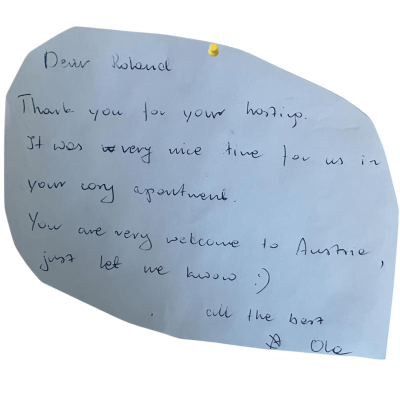 Dear Roland
Thank you for your hosting.
It was very nice time for us in
your cosy apartment.
You are very welcome to Austria,
just let me know :)
all the best
Ola